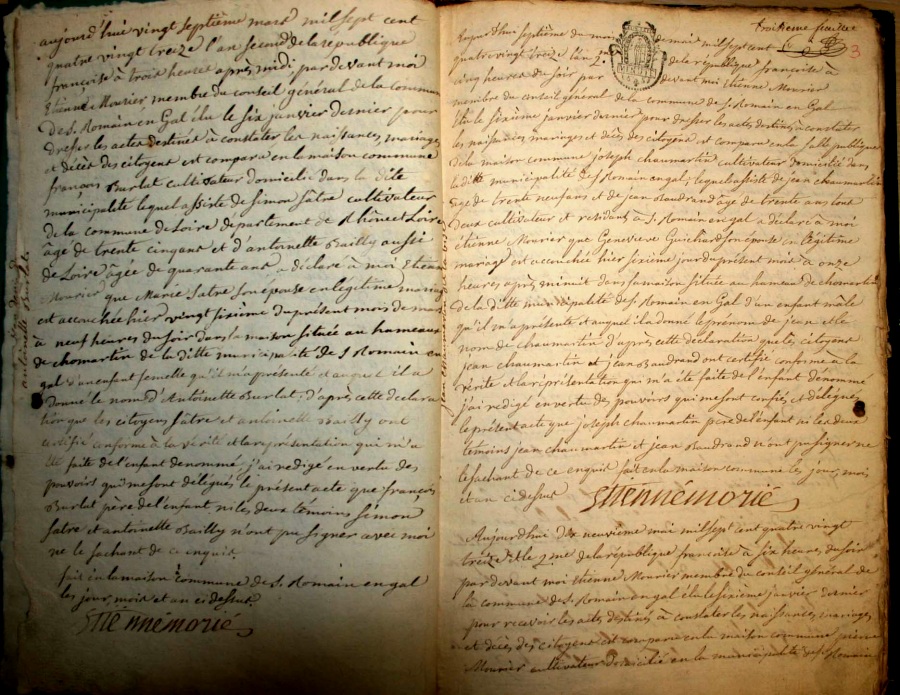 aujourd'hui vingt septième mars mil sept cent
quatre vingt treize l'an second de la république
françoise à trois heures après midi, par devant moi
Etienne Mourier membre du conseil général de la commune
de S. Romain en Gal élu le six janvier dernier pour
dresser les actes destinés à constater les naissances, mariages
et décès des citoyens est comparu en la maison commune
françois Burlat cultivateur domicilié dans la dite
municipalité lequel assisté de simon satre cultivateur
de la commune de Loire departement de Rhône et Loire
âgé de trente cinq ans et d'antoinette Bailly aussi
de Loire âgée de quarante ans a déclaré à moi Etienne
Mourier que Marie satre son epouse en legitime mariage
est accouchée hier vingt sixième du présent mois de mars
à neuf heures du soir dans la maison située au hameau
de chomartin de la ditte municipalité de S Romain en
gal d'un enfant femelle qu'il m'a présenté et auquel il a
donné le nom d'Antoinette Burlat; d'après cette declara
tion que les citoyens satre et antoinette Bailly ont
certifié conforme à la vérité et la représentation qui m'a
été faite de l'enfant denommé, j'ai redigé en vertu des
pouvoirs qui me sont délégués le présent acte que françois
Burlat père de l'enfant ni les deux temoins simon
satre et antoinette Bailly n'ont pu signer avec moi
ne le sachant de ce enquis.
fait en la maison commune de S. Romain en gal
les jour, mois et an ci dessus.
Ettiennemorié
antoinette Burlat
troisieme feuillet
3
aujourd'hui septième du mois de mai mil sept cent
quatre vingt treize l'an 2e de la république françoise à
cinq heures du soir par devant moi Etienne Mourier
membre du conseil général de la commune de S. Romain en Gal
élu le sixième janvier dernier pour dresser les actes destinés à constater
les naissances mariages et décès des citoyens est comparu en la salle publique
de la maison commune joseph chaumartin cultivateur domicilié dans
la ditte municipalité de S Romain en gal; lequel assisté de jean chaumartin
âgé de trente neuf ans et de jean Baudrand âgé de trente ans tous
deux cultivateur et résidants à S. Romain en gal a déclaré à moi
étienne Mourier que Genevieve Guichard son épouse en légitime
mariage est accouchée hier sixième jour du présent mois à onze
heures après minuit dans sa maison située au hameau de chomartin
de la ditte municipalité de S. Romain en Gal d'un enfant mâle
qu'il m'a présenté et auquel il a donné le prénom de jean et le
nom de chaumartin d'après cette déclaration que les citoyens
jean chaumartin et jean Baudrand ont certifié conforme à la
vérité et la représentation qui m'a été faite de l'enfant dénommé
j'ai redigé en vertu des pouvoirs qui me sont confiés et délégués
le présent acte que joseph chaumartin père de l'enfant ni les deux
temoins jean chaumartin et jean Baudrand n'ont pu signer ne
le sachant de ce enquis fait en la maison commune les jour, mois
et an ci dessus
Ettiennemorié
Aujourd'hui dix neuvième mai mil sept cent quatre vingt
treize et le 2.me de la république françoise à six heures du soir
par devant moi Etienne Mourier membre du conseil général de
la commune de S. Romain en gal élu le sixième janvier dernier
pour recevoir les actes destinés à constater les naissances, mariages
et décès des citoyens est comparu en la maison commune pierre
Mourier cultivateur domicilié en la municipalité de S Romain